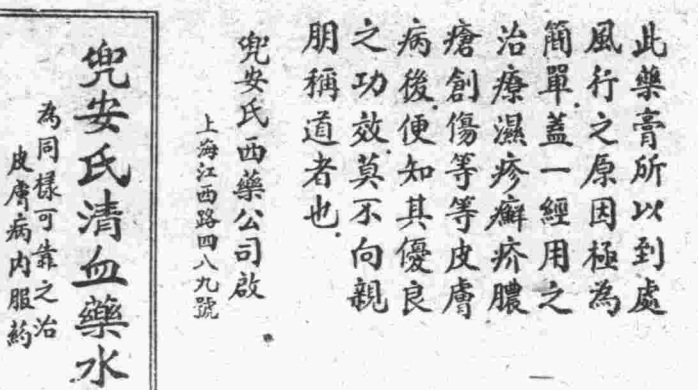 此藥膏所以到處
風行之原因極為
簡單.蓋一經用之
治療濕疹癬疥膿
瘡創傷等等皮膚
病後.便知其優良
之功效.莫不向親
朋稱道者也.
兜安氏西藥公司啟
上海江西路四八九號
兜安氏清血藥水
為同樣可靠之治
皮膚病內服葯